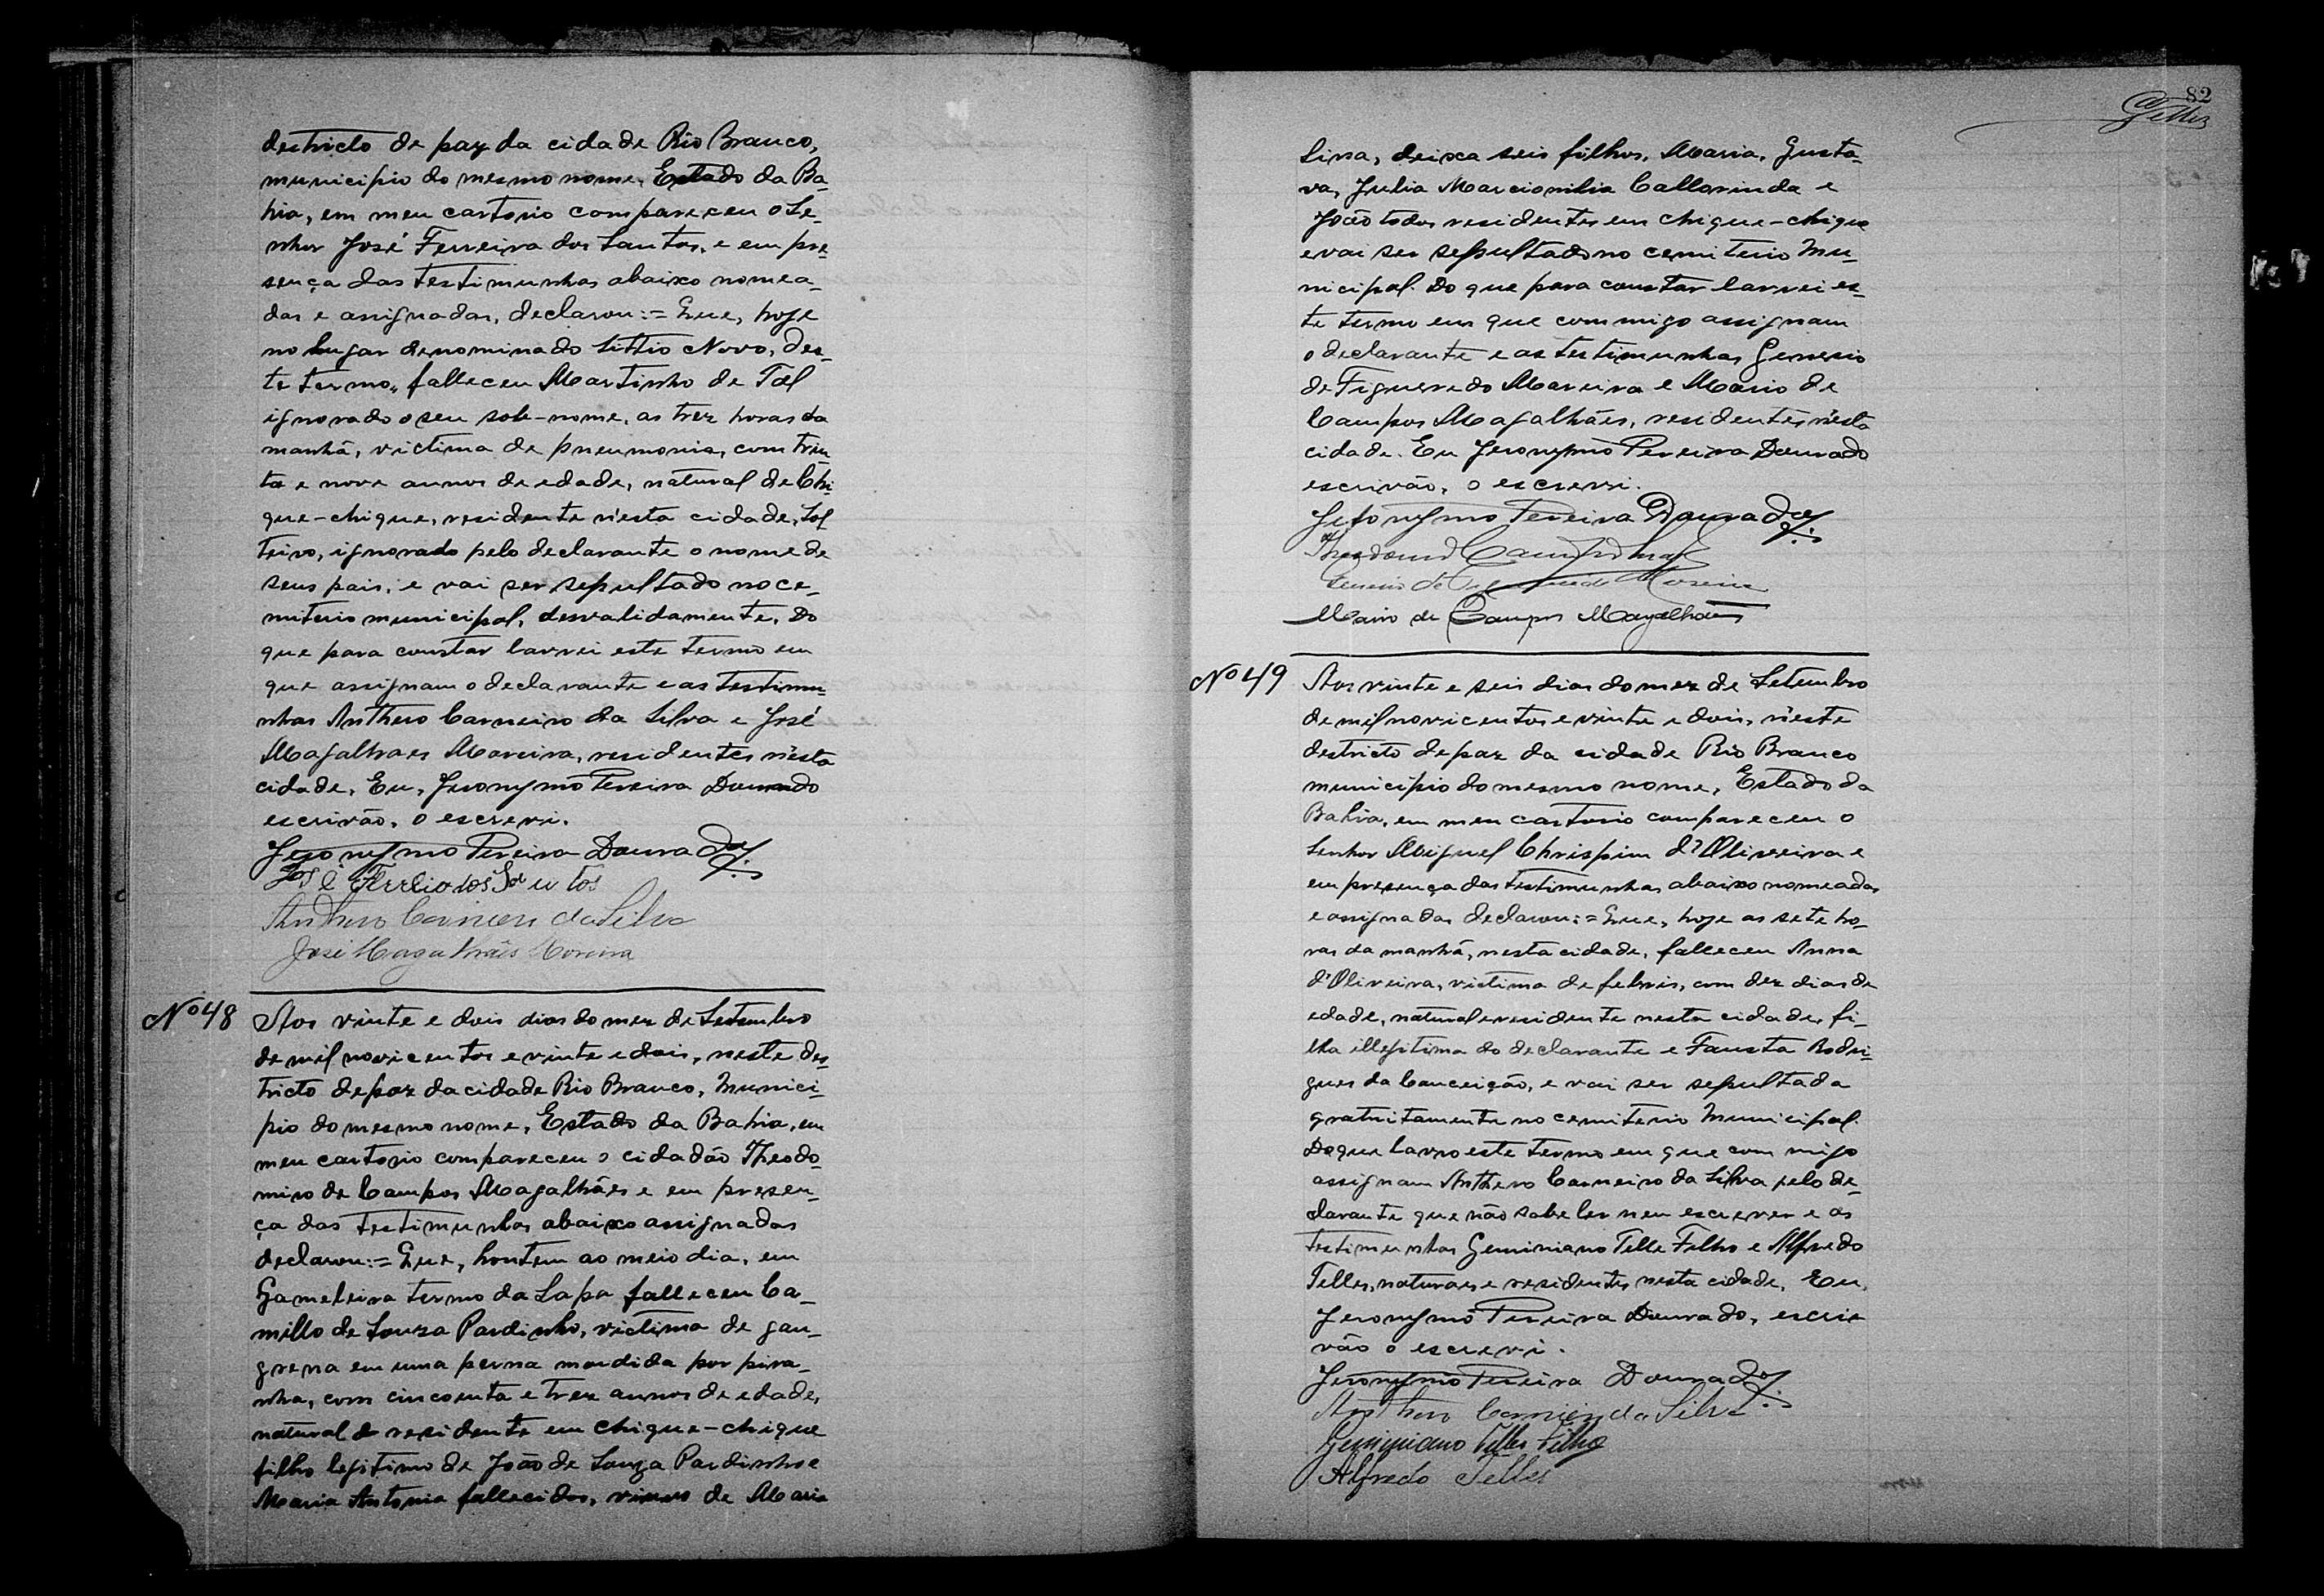 destricto de paz da cidade Rio Branco,
municipio do mesmo nome, Estado da Ba-
hia, em meu cartorio compareceu o Se-
nhor José Ferreira dos Santos, e em pre-
sença das testimunhas abaixo nomea-
das e assignadas, declarou:= Que, hoje
no lugar denominado Sittio Novo, des-
te termo, falleceu Martinho de Tal
ignorado o seu sobe-nome, as trez horas da
manhã, victima de pneumonia, com trin
ta e nove annos de edade, natural de Chi-
que-chique, residente n'esta cidade, sol
teiro, ignorado pelo declarante o nome de
seus pais, e vai ser sepultado no ce-
miterio municipal, desvalidamente. Do
que para constar larvei este termo em
que assignam o declarante e as testimu
nhas Anthero Carneiro da Silva e José
Magalhaes Moreira, residentes n'esta
cidade, Eu, Jeronymo Pereira Dourado
escrivão, o escrevi.
Jeronymo Pereira Dourado
José Ferreira dos Santos
Anthero Carneiro da Silva
José Magalhães Moreira
Nº 48 Aos vinte e dois dias do mez de Setembro
de mil novicentos e vinte e dois, neste des-
tricto de paz da cidade Rio Branco, Munici-
pio do mesmo nome, Estado da Bahia, em
meu cartorio compareceu o cidadão Theodo-
miro de Campos Magalhães e em presen-
ça das testimunhas abaixo assignadas
declarou:= Que, hontem ao meio dia, em
Gameleira termo da Lapa falleceu Ca-
millo de Souza Pardinho, victima de gan-
grena em uma perna mordida por pira-
nha, com cincoenta e trez annos de edade,
natural e residente em Chique-chique
filho legitimo de João de Souza Pardinho e
Maria Antonia fallecidos, viuvo de Maria
82
Telles
Lina, deixa seis filhos, Maria, Gusta-
va, Julia Marcionilia Callorinda e
João todos residentes em Chique-chique
e vai ser sepultado no cemiterio Mu-
nicipal. Do que para constar larvei es-
te termo em que commigo assignam
o declarante e as testimunhas Genesio
de Figueredo Moreira e Mario de
Campos Magalhães, residentes n'esta
cidade. Eu Jeronymo Pereira Dourado
escrivão, o escrevi.
Jeronymo Pereira Dourado
Genesio de Figueredo Moreira
Mario de Campos Magalhães
Nº 49 Aos vinte e seis dias do mez de Setembro
de mil novicentos e vinte e dois, n'este
destricto de paz da cidade Rio Branco
municipio do mesmo nome, Estado da
Bahia, em meu cartorio compareceu o
Senhor Miguel Chrispim d'Oliveira e
em presença das testimunhas abaixo nomeadas
e assignadas declarou:= Que, hoje as sete ho-
ras da manhã, nesta cidade, falleceu Anna
d'Oliveira, victima de febris, com dez dias de
edade, natural e residente nesta cidade, fi-
lha illegitima do declarante e Fausta Rodri-
gues da Conceição, e vai ser sepultada
gratuitamente no cemiterio Municipal.
Do que lavro este termo em que com migo
assignam Anthero Carneiro da Silva pelo de-
clarante que não sabe ler nem escrever e as
testimunhas Geminiano Telle Filho e Alfredo
Telles, naturaes e residentes nesta cidade, Eu,
Jeronymo Pereira Dourado, escri
vão o escrevi.
Jeronymo Pereira Dourado
Anthero Carneiro da Silva
Geminiano Telles Filho
Alfredo Telles